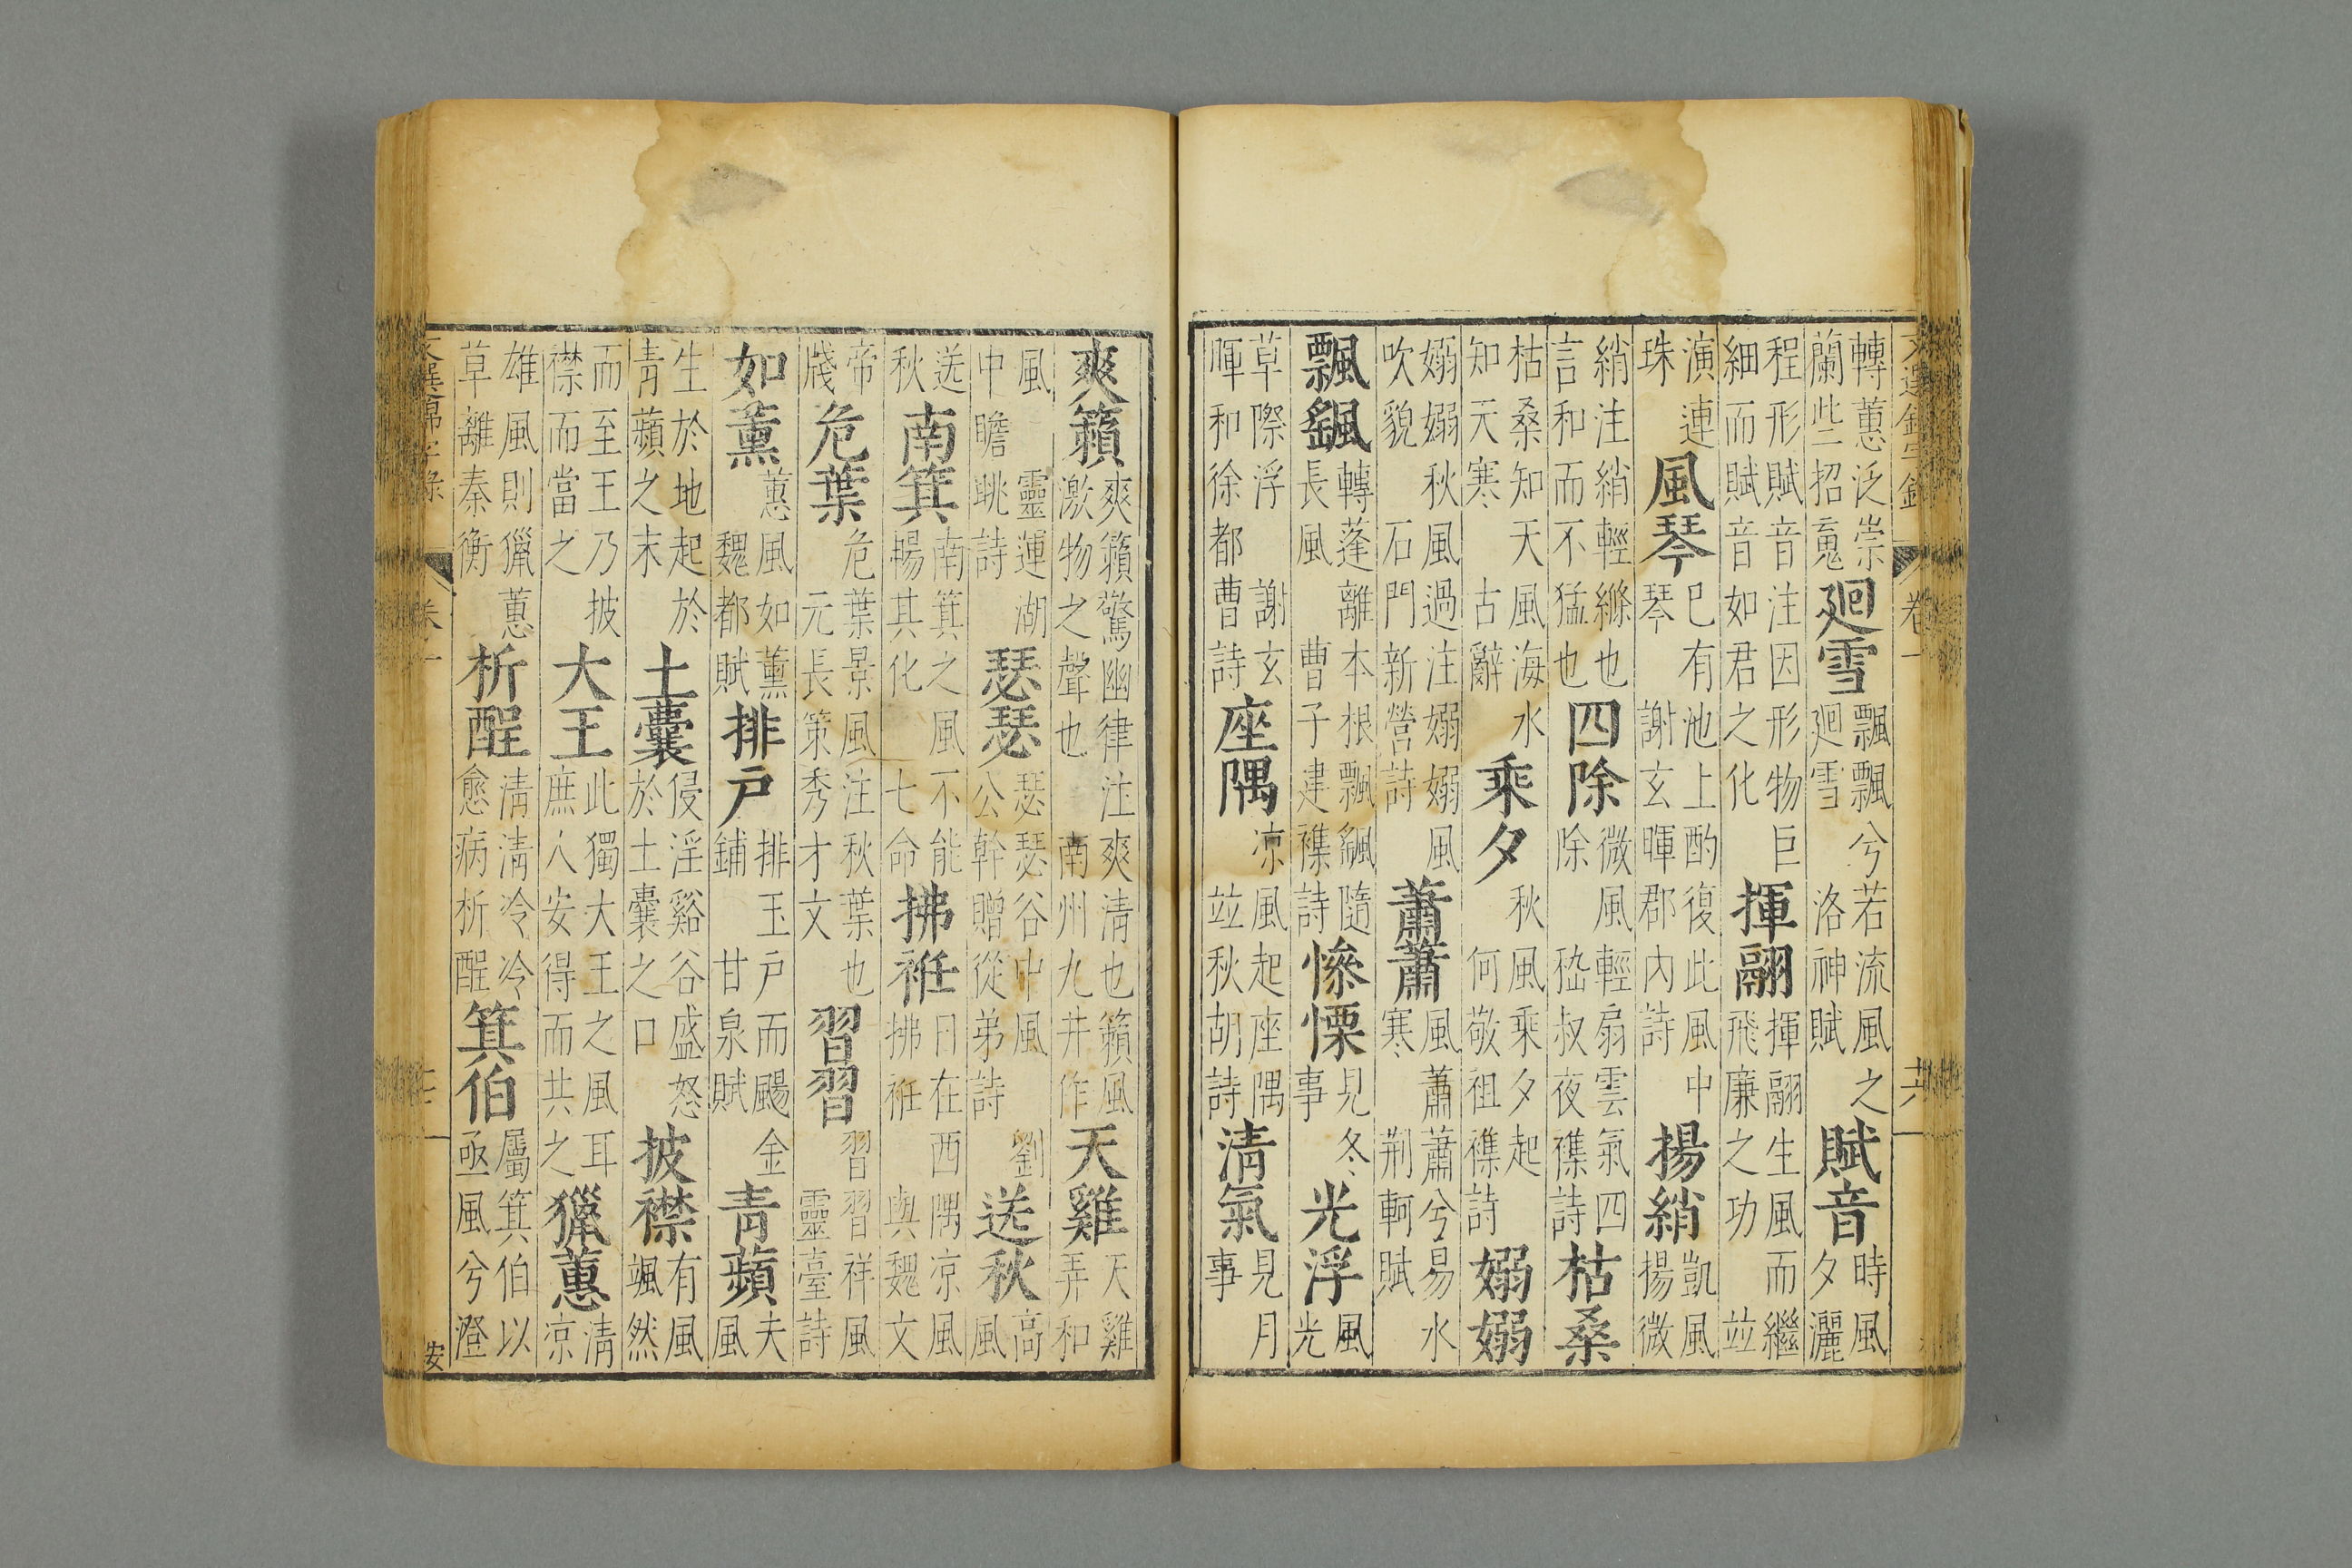 文選錦字錄 卷一
轉蕙泛崇蘭些招䰟 廻雪 飄飄兮若流風之廻雪 洛神賦 賦音 時風夕灑
程形賦音注因形物巨細而賦音如君之化 揮翮 揮翮生風而繼飛廉之功 竝
演連珠 風琴 巳有池上酌復此風中琴 謝玄暉郡內詩 揚綃 凱風揚微
綃注綃輕縧也言和而不猛也 四除 微風輕扇雲氣四除 嵇叔夜襍詩 枯桑
枯桑知天風海水知天寒 古辭 乘夕 秋風乘夕起 何敬祖襍詩 嫋嫋
嫋嫋秋風過注嫋嫋風吹貌 石門新營詩 蕭蕭 風蕭蕭兮易水寒 荊軻賦
飄飖 轉蓬離本根飄飖隨長風 曹子建襍詩 慘慄 見冬事 光浮 風光
草際浮 謝玄暉和徐都曹詩 座隅 凉風起座隅 竝秋胡詩 清氣 見月事
爽籟 爽籟驚幽律注爽清也籟風激物之聲也 南州九井作 天雞 天雞弄和
風 靈運湖中瞻眺詩 瑟瑟 瑟瑟谷中風 劉公幹贈從弟詩 送秋 高風
送秋 南箕 南箕之風不能暢其化 七命 拂袵 日在西隅凉風拂袵 與魏文
帝牋 危葉 危葉景風注秋葉也 元長策秀才文 習習 習習祥風 靈臺詩
如薰 蕙風如薰 魏都賦 排戶 排玉戶而颺金鋪 甘泉賦 青蘋 夫風
生於地起於青蘋之末 土囊 侵淫谿谷盛怒於土囊之口 披襟 有風颯然
而至王乃披襟而當之 大王 此獨大王之風耳庶人安得而共之 獵蕙 清凉
雄風則獵蕙草離秦衡 析酲 清清冷冷愈病析酲 箕伯 屬箕伯以亟風兮澄
安